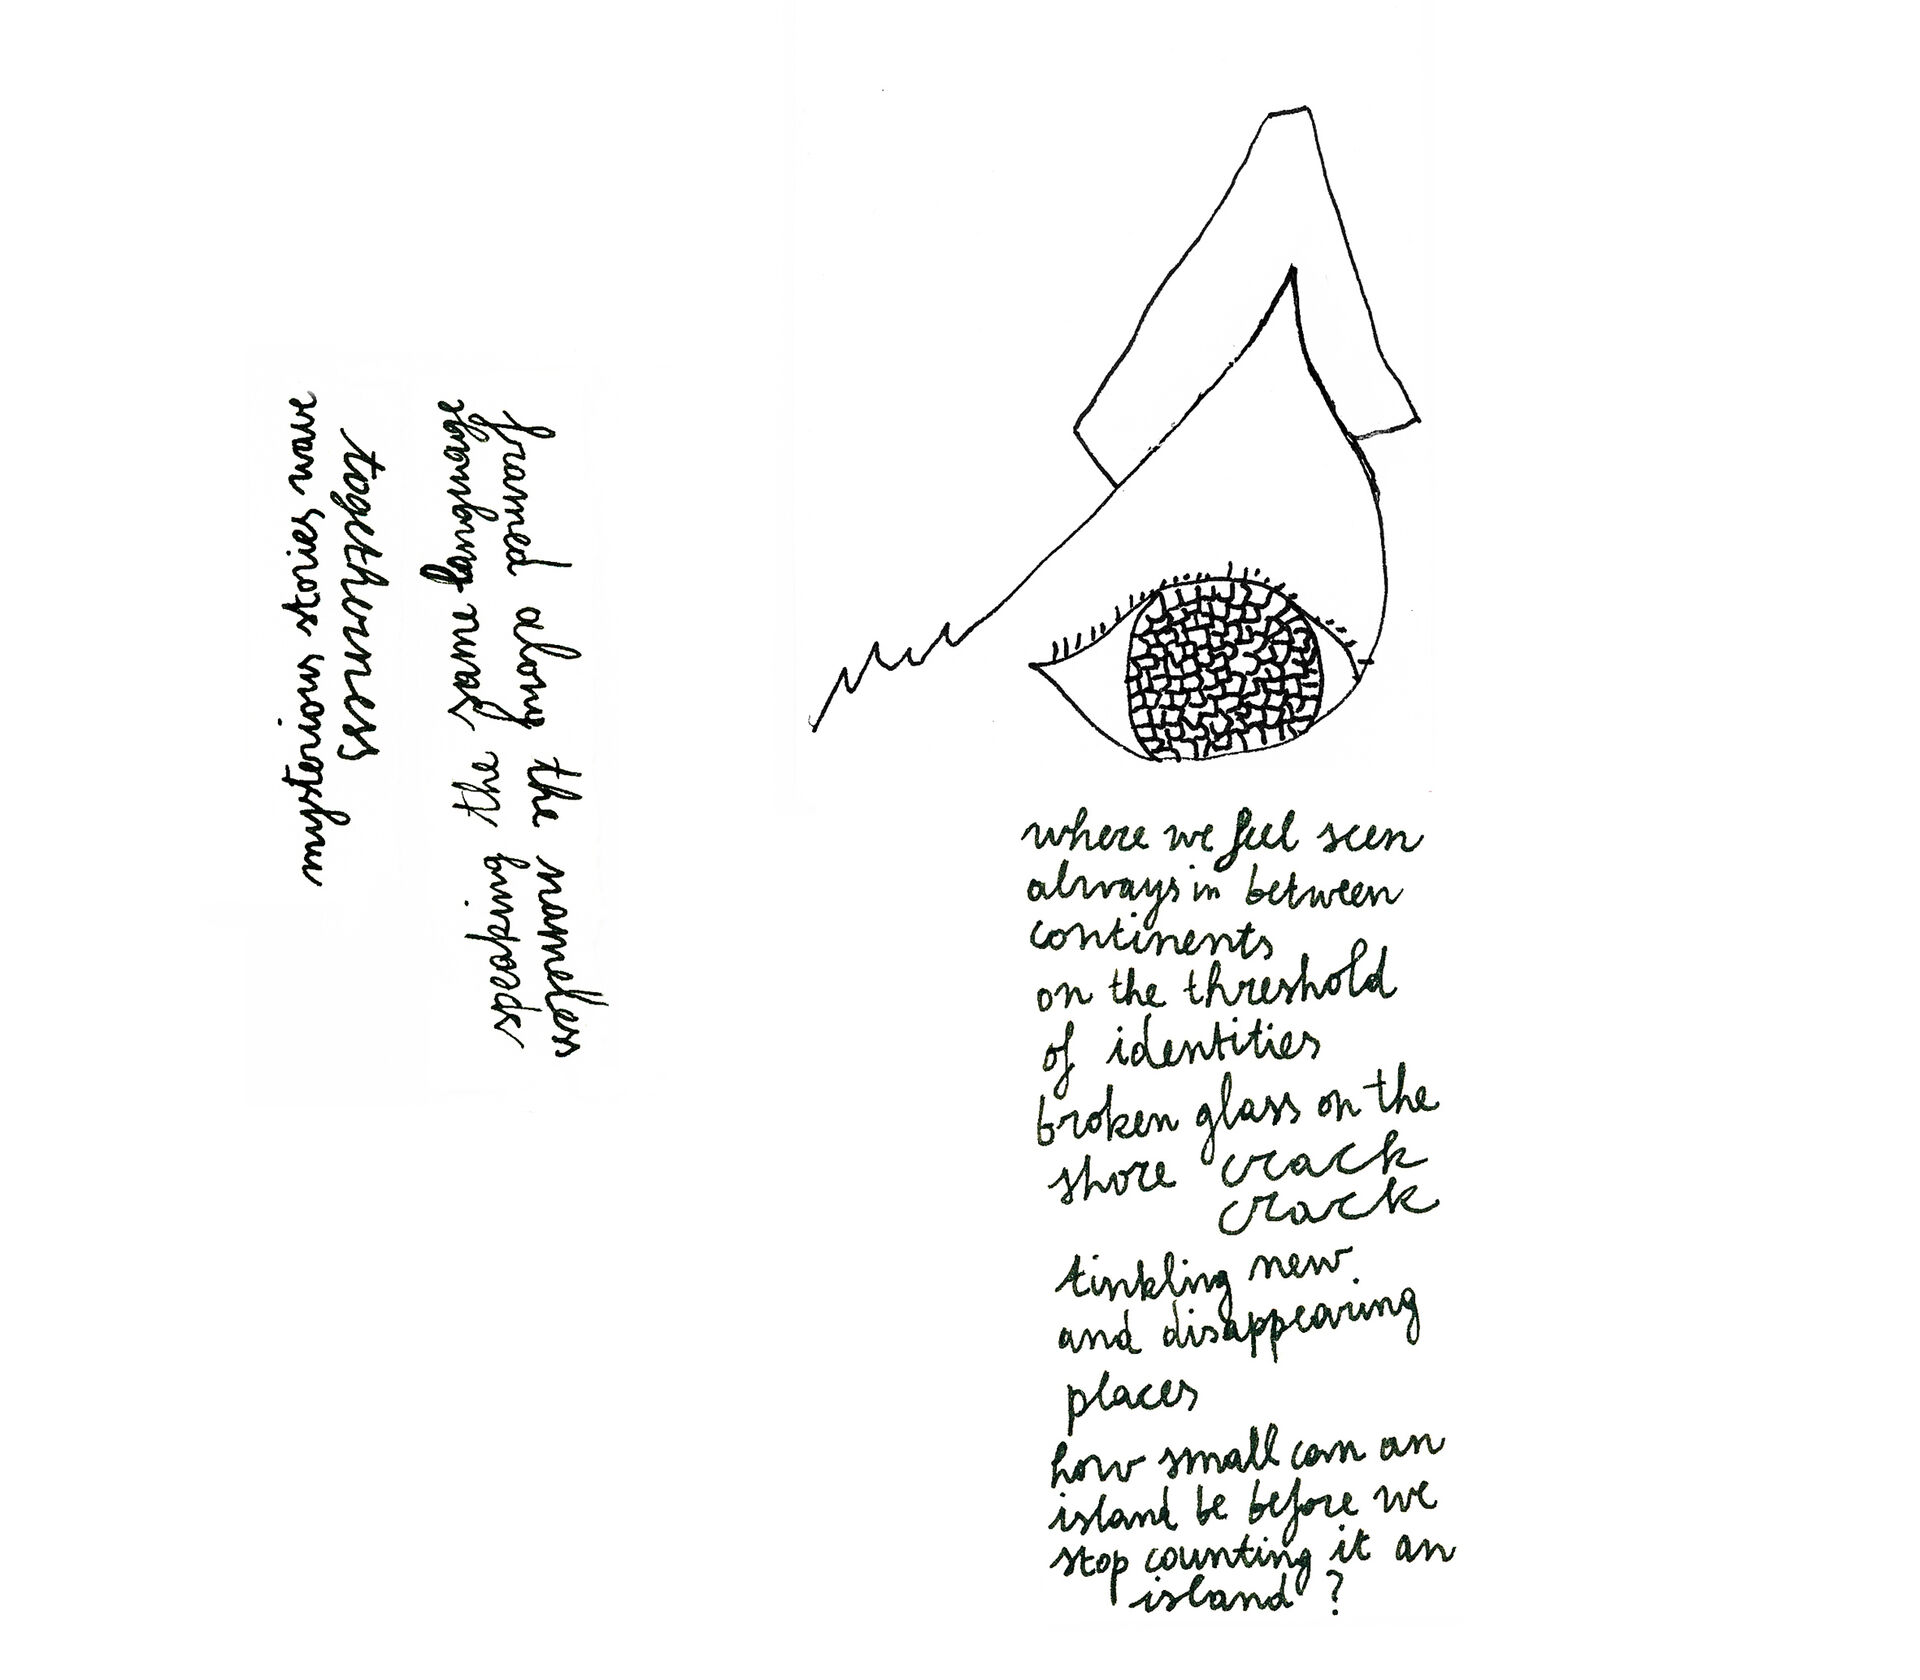 mysterious stories wave
togetherness
speaking the same language
framed along the nameless
where we feel seen
always in between
continents
on the threshold
of identities
broken glass on the
shore crack
crack
tinkling new
and disappearing
places
how small can an
island be before we
stop counting it an
island ?